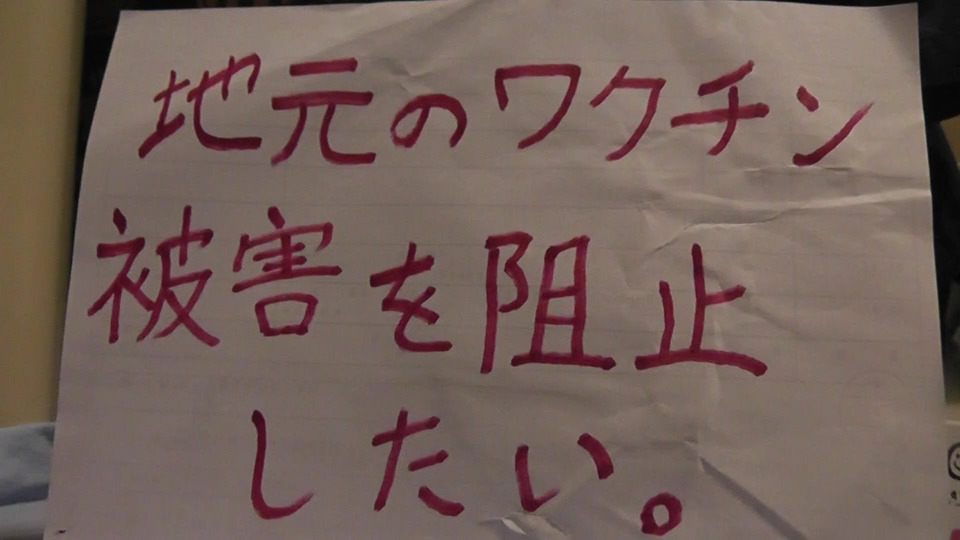 地元のワクチン
被害を阻止
したい。